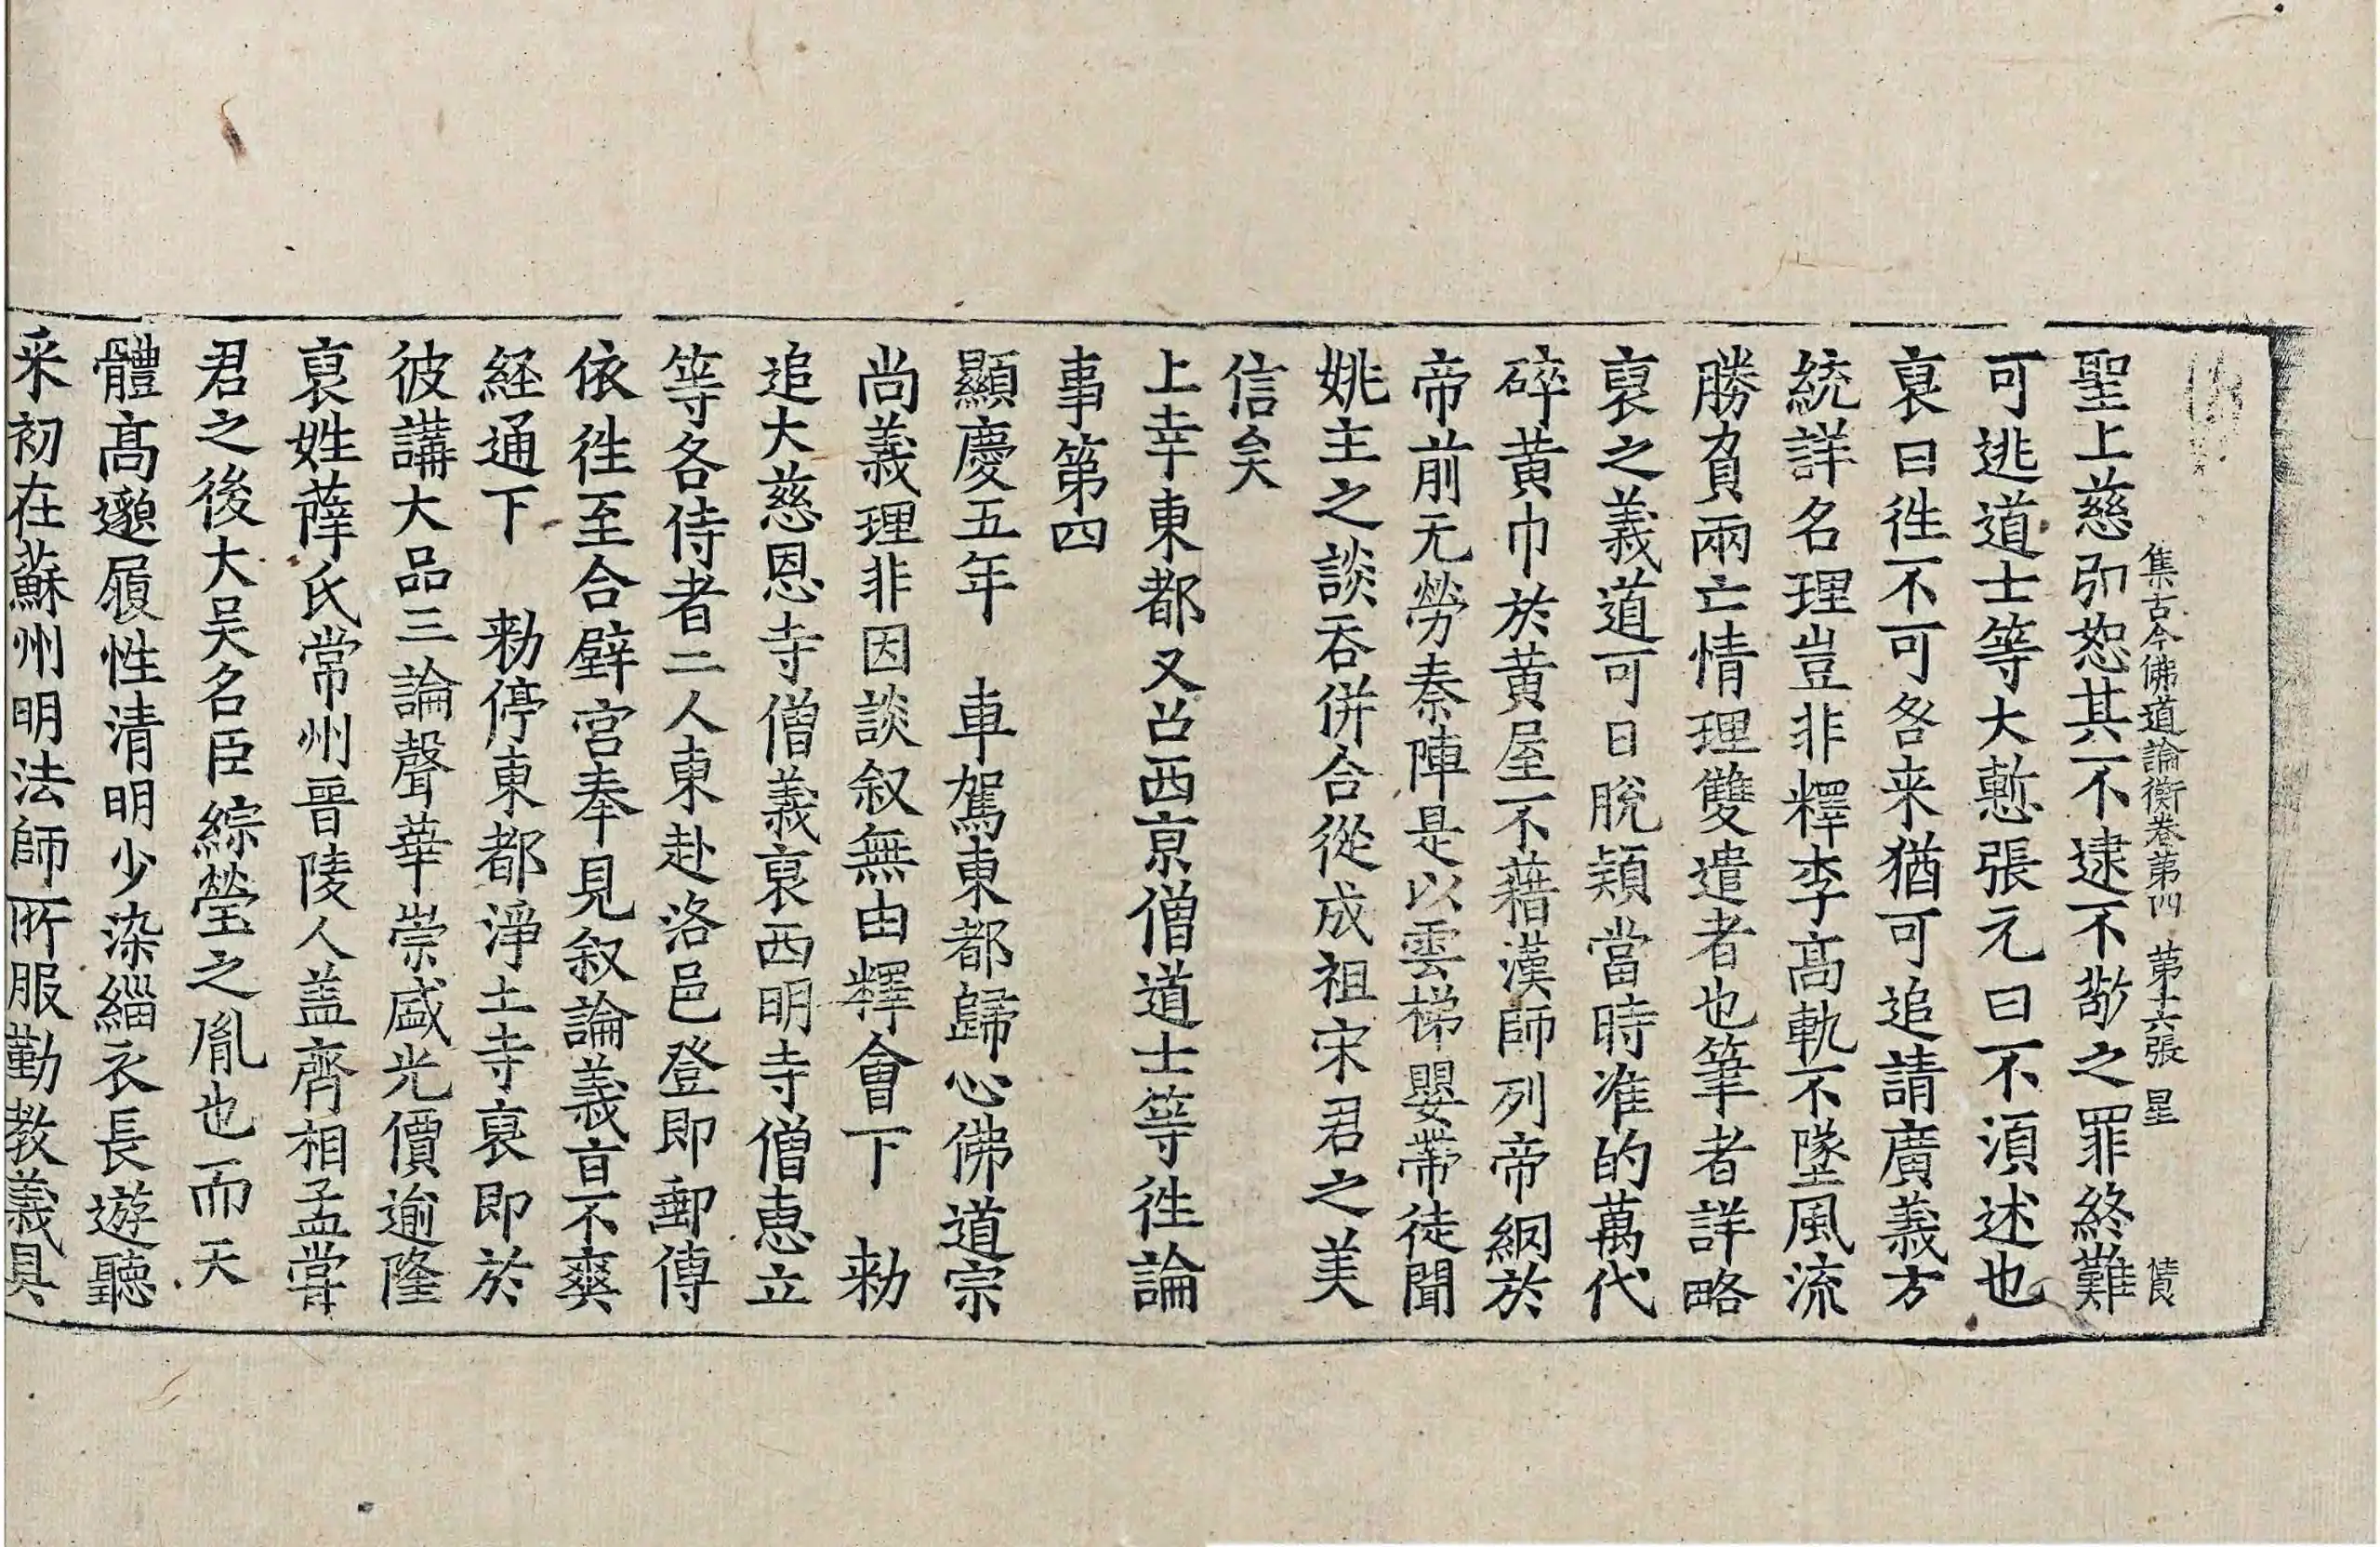 集古今佛道論衡卷第四 第六張 星
聖上慈弘恕其不逮不敬之罪終難
可逃道士等大慙張元曰不須述也
裒曰徃不可咎来猶可追請廣義方
統詳名理豈非釋李髙軌不墜風流
勝負兩亡情理雙遣者也筆者詳略
裒之義道可曰脫穎當時准的萬代
碎黄巾於黄屋不藉漢師列帝網於
帝前无勞秦陣是以雲梯嬰帶徒聞
姚主之談吞併合從成祖宋君之美
信矣
上幸東都又召西京僧道士等徃論
事第四
顯慶五年 車駕東都歸心佛道宗
尚義理非因談叙無由釋會下 勑
追大慈恩寺僧義裒西明寺僧恵立
等各侍者二人東赴洛邑登即郵傳
依徃至合璧宮奉見叙論義旨不爽
経通下 勑停東都淨土寺裒即於
彼講大品三論聲華崇盛光價逾隆
裒姓薛氏常州晉陵人盖齊相孟嘗
君之後大吴名臣綜瑩之胤也而天
體髙邈履性清明少染緇衣長遊聽
采初在蘇州明法師所服勤教義具